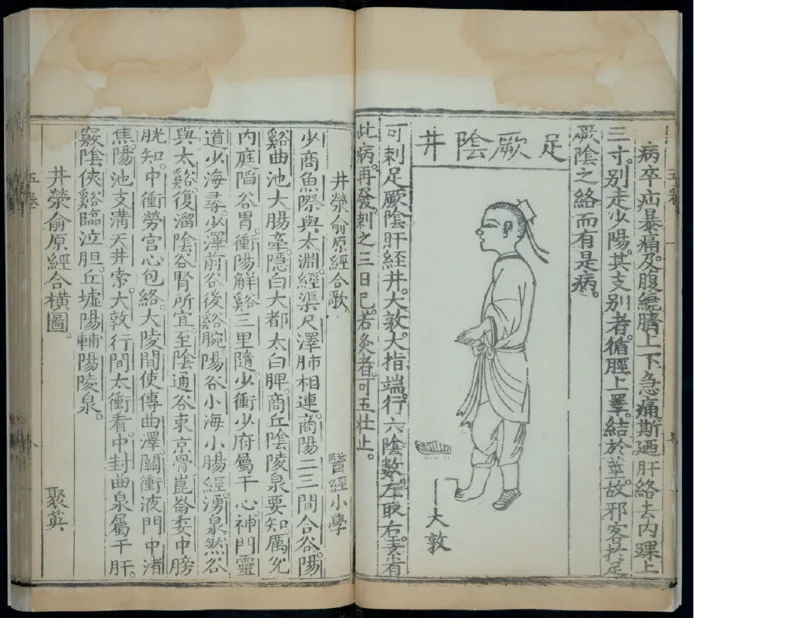 病卒疝暴痛及腹繞臍上下急痛。斯廼肝絡去內踝上
三寸。別走少陽。其支別者。循脛上睪。結於莖。故邪客於足
厥陰之絡而有是病。
足厥陰井
大敦
可刺足厥陰肝經井。大敦。大指端。行六陰數。左取右。素有
此病。再發。刺之三日已。若灸者。可五壯止。
井滎俞原經合歌。 醫經小學
少商魚際與太淵。經渠尺澤肺相連。商陽二三間合谷。陽
谿曲池大腸牽。隱白大都太白脾。商丘陰陵泉要知。厲兌
內庭陷谷胃。衝陽解谿三里隨。少衝少府屬于心。神門靈
道少海尋。少澤前谷後谿腕。陽谷小海小腸經。湧泉然谷
與太谿。復溜陰谷腎所宜。至陰通谷束京骨。崑崙委中膀
胱知。中衝勞宮心包絡。大陵間使傳曲澤。關衝液門中渚
焦。陽池支溝天井索。大敦行間太衝看。中封曲泉屬于肝。
竅陰俠谿臨泣胆。丘墟陽輔陽陵泉。
井滎俞原經合橫圖。 聚英
五